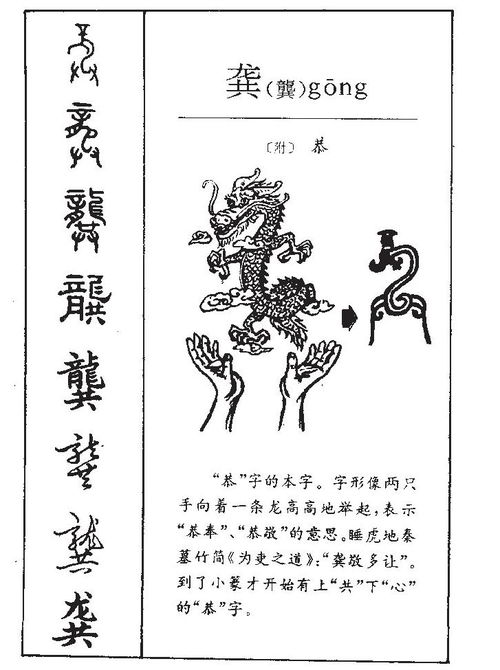 龚(龔)gōng
〔附〕 恭
“恭”字的本字。字形像两只
手向着一条龙高高地举起,表示
“恭奉”、“恭敬”的意思。睡虎地秦
墓竹简《为吏之道》:“龚敬多让”。
到了小篆才开始有上“共”下“心”
的“恭”字。
龔
龔
龔
龔
龔
龔
龔
龚